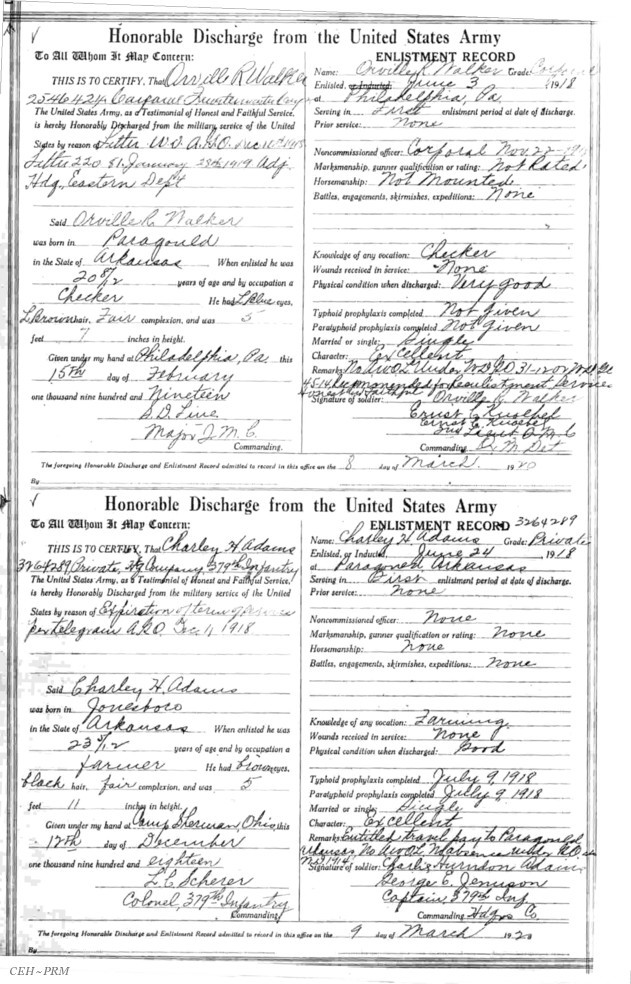 Honorable Discharge from the United States Army
To All Whom It May Concern:
THIS IS TO CERTIFY, That Orville R. Walker
2546424 Corporal
The United States Army, as a Testimonial of Honest and Faithful Service,
is hereby Honorably Discharged from the military service of the United
States by reason of Letter W.D. A.G.O. Dec 1918
Letter 220.81 January 28th 1919 Adj.
Hdq. Eastern Dept
Said Orville R. Walker
was born in Paragould
in the State of Arkansas When enlisted he was
20 8/12 years of age and by occupation a
Checker He had L. Blue eyes,
L Brown hair, Fair complexion, and was 5
feet 7 inches in height.
Given under my hand at Philadelphia, Pa this
15th day of February
one thousand nine hundred and Nineteen
Major
Commanding.
ENLISTMENT RECORD
Name: Orville R. Walker Grade: Corporal
Enlisted, or Inducted, June 3, 1918
at Philadelphia, Pa.
Serving in First enlistment period at date of discharge.
Prior service: None
Noncommissioned officer: Corporal Nov. 22-1918
Marksmanship, gunner qualification or rating: Not Rated
Horsemanship: Not Mounted
Battles, engagements, skirmishes, expeditions: None
Knowledge of any vocation: Checker
Wounds received in service: None
Physical condition when discharged: Very good
Typhoid prophylaxis completed Not given
Paratyphoid prophylaxis completed Not given
Married or single: Single
Character: Excellent
Remarks: No A.W.O.L. Under W.D. G.O. 31-12
45-14 Recommended for reenlistment Service
Honest & Faithful
Signature of soldier: Orville R. Walker
Ernest C.
Ernest C.
Commanding Det
The foregoing Honorable Discharge and Enlistment Record admitted to record in this office on the 8 day of March. 1920
By
Honorable Discharge from the United States Army
To All Whom It May Concern:
THIS IS TO CERTIFY, That Charley H. Adams
3264289 Private, Hq Company 379th Infantry
The United States Army, as a Testimonial of Honest and Faithful Service,
is hereby Honorably Discharged from the military service of the United
States by reason of Expiration of term of service
per telegram A.G.O. Dec 1, 1918
Said Charley H. Adams
was born in Jonesboro
in the State of Arkansas When enlisted he was
23 years of age and by occupation a
farmer He had brown eyes,
black hair, fair complexion, and was 5
feet 11 inches in height.
Given under my hand at Camp Sherman, Ohio, this
17th day of December
one thousand nine hundred and eighteen
L. C. Scherer
Colonel, 379th Infantry
Commanding.
ENLISTMENT RECORD 3264289
Name: Charley H. Adams Grade: Private
Enlisted, or Inducted, June 24, 1918
at Paragould, Arkansas
Serving in First enlistment period at date of discharge.
Prior service: None
Noncommissioned officer: None
Marksmanship, gunner qualification or rating: None
Horsemanship: None
Battles, engagements, skirmishes, expeditions: None
Knowledge of any vocation: Farming
Wounds received in service: None
Physical condition when discharged: Good
Typhoid prophylaxis completed July 9, 1918
Paratyphoid prophylaxis completed July 9, 1918
Married or single: Single
Character: Excellent
Remarks: Entitled travel pay to Paragould
Arkansas, No A.W.O.L. No absence under G.O.
1914
Signature of soldier: Charlie Hurndon Adams
George E. Jemison
Captain, 379th Inf
Commanding Hdqrs Co.
The foregoing Honorable Discharge and Enlistment Record admitted to record in this office on the 9 day of March 1920
By
CEH~PRM